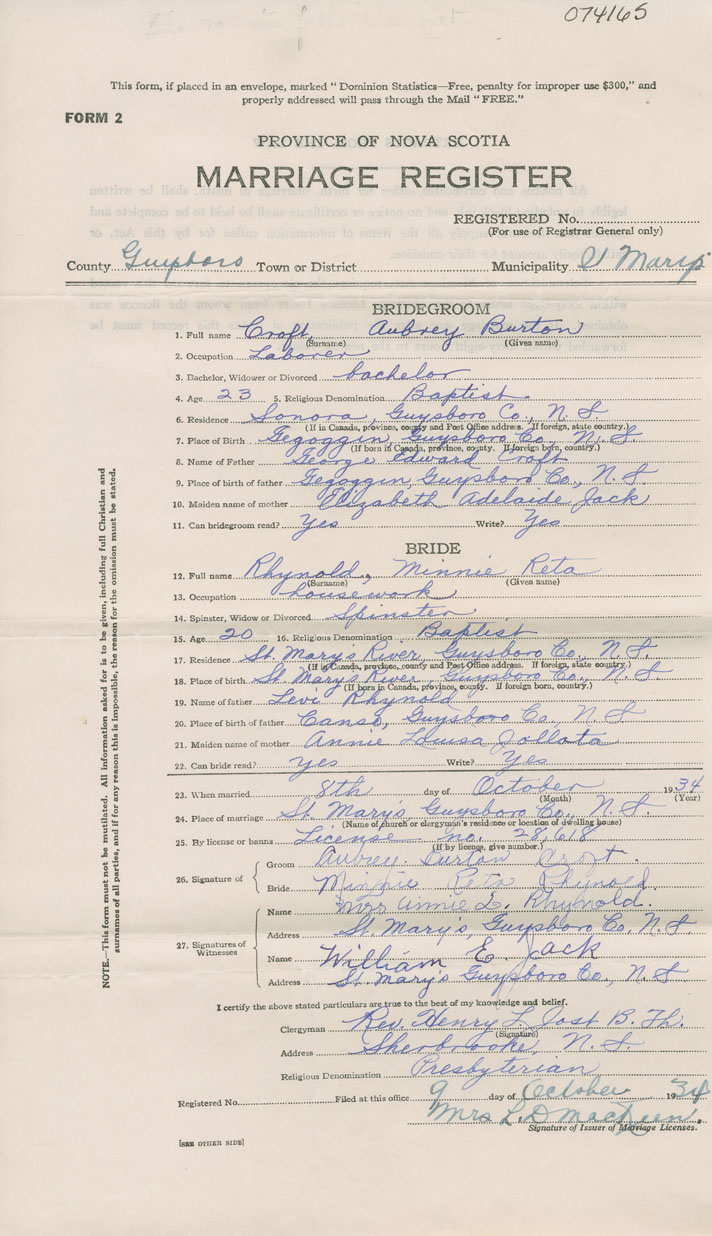 074165
This form, if placed in an envelope, marked "Dominion Statistics—Free, penalty for improper use $300," and
properly addressed will pass through the Mail "FREE."
FORM 2
PROVINCE OF NOVA SCOTIA
MARRIAGE REGISTER
REGISTERED No.
(For use of Registrar General only)
County Guysboro Town or District Municipality St Marys
BRIDEGROOM
1. Full name Croft, Aubrey Burton
(Surname) (Given name)
2. Occupation Laborer
3. Bachelor, Widower or Divorced bachelor
4. Age 23 5. Religious Denomination Baptist.
6. Residence Sonora, Guysboro Co., N. S.
(If in Canada, province, county and Post Office address. If foreign, state country.)
7. Place of Birth Gegoggin, Guysboro Co., N. S.
(If born in Canada, province, county. If foreign born, country.)
8. Name of Father George Edward Croft
9. Place of birth of father Gegoggin, Guysboro Co., N. S.
10. Maiden name of mother Elizabeth Adelaide Jack
11. Can bridegroom read? Yes Write? Yes
BRIDE
12. Full name Rhynold, Minnie Reta
(Surname) (Given name)
13. Occupation housework
14. Spinster, Widow or Divorced Spinster
15. Age 20 16. Religious Denomination Baptist
17. Residence St. Mary's River, Guysboro Co., N. S.
(If in Canada, province, county and Post Office address. If foreign, state country.)
18. Place of birth St. Mary's River, Guysboro Co., N. S.
(If born in Canada, province, county. If foreign born, country.)
19. Name of father Levi Rhynold
20. Place of birth of father Canso, Guysboro Co., N. S
21. Maiden name of mother Annie Louisa Jollota
22. Can bride read? yes Write? Yes
23. When married 8th day of October 1934
(Month) (Year)
24. Place of marriage St. Mary's, Guysboro Co., N. S.
(Name of church or clergyman's residence or location of dwelling house)
25. By license or banns License no. 28,618
(If by license, give number.)
26. Signature of
Groom Aubrey Burton Croft.
Bride Minnie Reta Rhynold.
27. Signatures of Witnesses
Name Mrs Annie L. Rhynold.
Address St. Mary's, Guysboro Co., N. S.
Name William E. Jack
Address St. Mary's Guysboro Co., N. S
I certify the above stated particulars are true to the best of my knowledge and belief.
Clergyman Rev. Henry L. Jost B. Th.
(Signature)
Address Sherbrooke, N. S.
Religious Denomination Presbyterian
Registered No. Filed at this office 9 day of October 1934
Mrs L. D.
Signature of Issuer of Marriage Licenses.
[SEE OTHER SIDE]
NOTE.—This form must not be mutilated. All information asked for is to be given, including full Christian and
surnames of all parties, and if for any reason this is impossible, the reason for the omission must be stated.